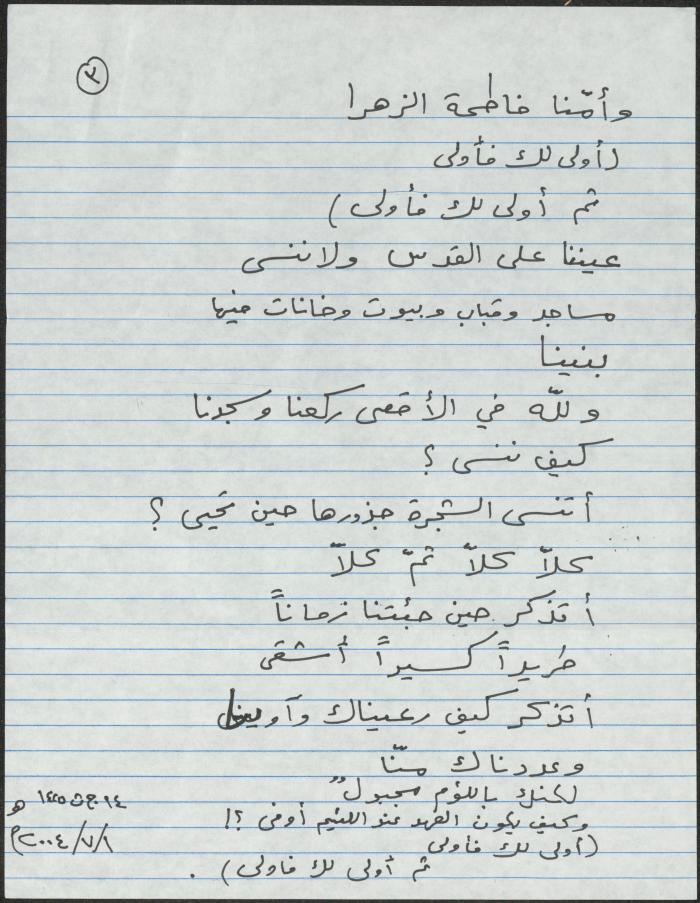 ٣
وأمّنا فاطمة الزهرا
(أولى لك فأولى
ثم أولى لك فأولى)
عيننا على القدس ولا ننسى
مساجد وقباب وبيوت وخانات فيها
بنينا
وللّه في الأقصى ركعنا وسجدنا
كيف ننسى ؟
أتنسى الشجرة جذورها حين تحيى ؟
كلاّ كلاّ ثمّ كلاّ
أتذكر حين جئتنا زماناً
طريداً كسيراً أشقى
أتذكر كيف رعيناك وآوينا
وعددناك منّا
لكنك باللؤم مجبولٌ
وكيف يكون العهد عند اللئيم أوفى ؟!
(أولى لك فأولى
ثم أولى لك فأولى) .
١٤ ج ١٤٢٥ هـ
٢٠٠٤/٧/١م